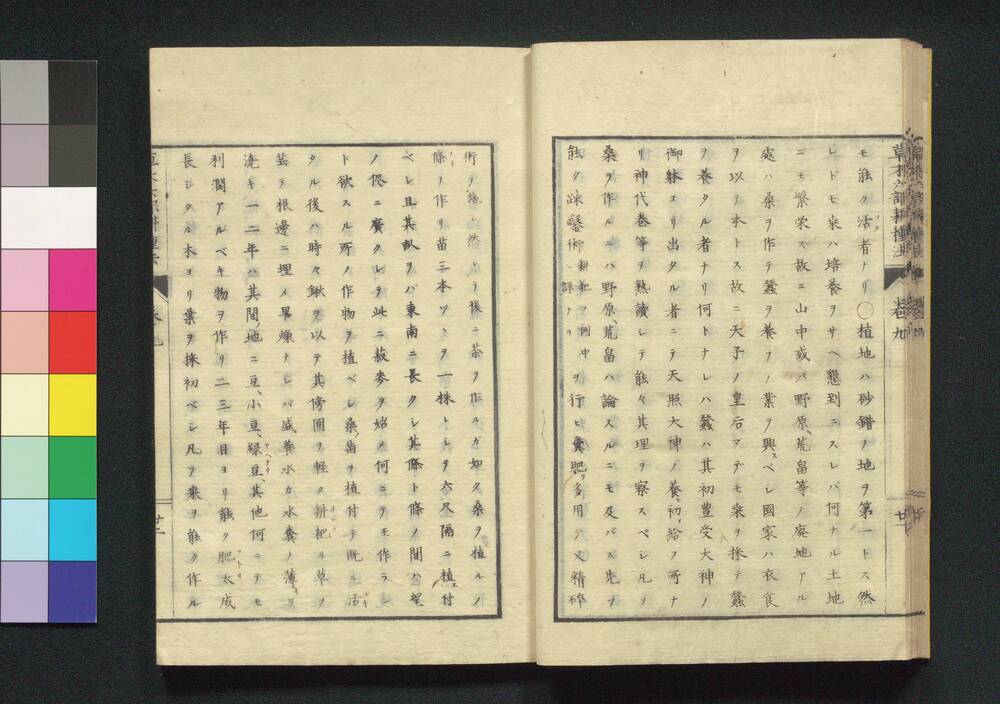 草木六部耕種法 卷九 廿一
モ能ク活者ナリ〇植地ハ砂錯ノ地ヲ第一トス然
レドモ桒ハ培養ヲサヘ懇到ニスレバ何ナル土地
ニモ繁栄ス故ニ山中或バ野原、荒畠等ノ廃地アル
處ハ桑ヲ作テ蠶ヲ養フノ業ヲ興スベシ國家ハ衣食
ヲ以テ本トス故ニ天子ノ皇后マデモ桒ヲ採テ蠶
ヲ養タル者ナリ何トナレハ蠶ハ其初豊受大神ノ
御躰ヨリ出タル者ニテ天照大神ノ養ヒ初メ給フ所ナ
リ神代巻等ヲ熟讀シテ能々其理ヲ察スベシ凡ソ
桑ヲ作ルニハ野原荒畠ハ論スルニモ及バス先ツ
能ク疎鑿術ヲ行ヒ糞肥ヲ多用シ又精碎
術ヲ施シ然シテ後ニ茶ヲ作ルガ如ク桑ヲ植ルノ
條ヲ作リ苗三本ツヽヲ一株トシテ六尺隔ニ植ヱ付
ベシ且其畝ヲバ東南ニ長クシ其條ト條ノ間ハ望
ノ侭ニ廣クシテ此ニ菽麥ヲ始メ何ニテモ作ラン
ト欲スル所ノ作物ヲ植ベシ桑苗ヲ植付テ既ニ活
タル後ハ時々鍬ヲ以テ其傍囲ヲ軽ク耕把リ草ヲ
芸テ根邊ニ埋メ旱燥ナレバ盛養水カ水糞ノ薄キヲ
澆ギ一二年ハ其間地ニ豆、小豆、緑豆、其他何ニテモ
利潤アルベキ物ヲ作リ二三年目ヨリ能ク肥太成
長シタル木ヨリ葉ヲ採初ベシ凡ソ桒ヲ能ク作ル
廿一